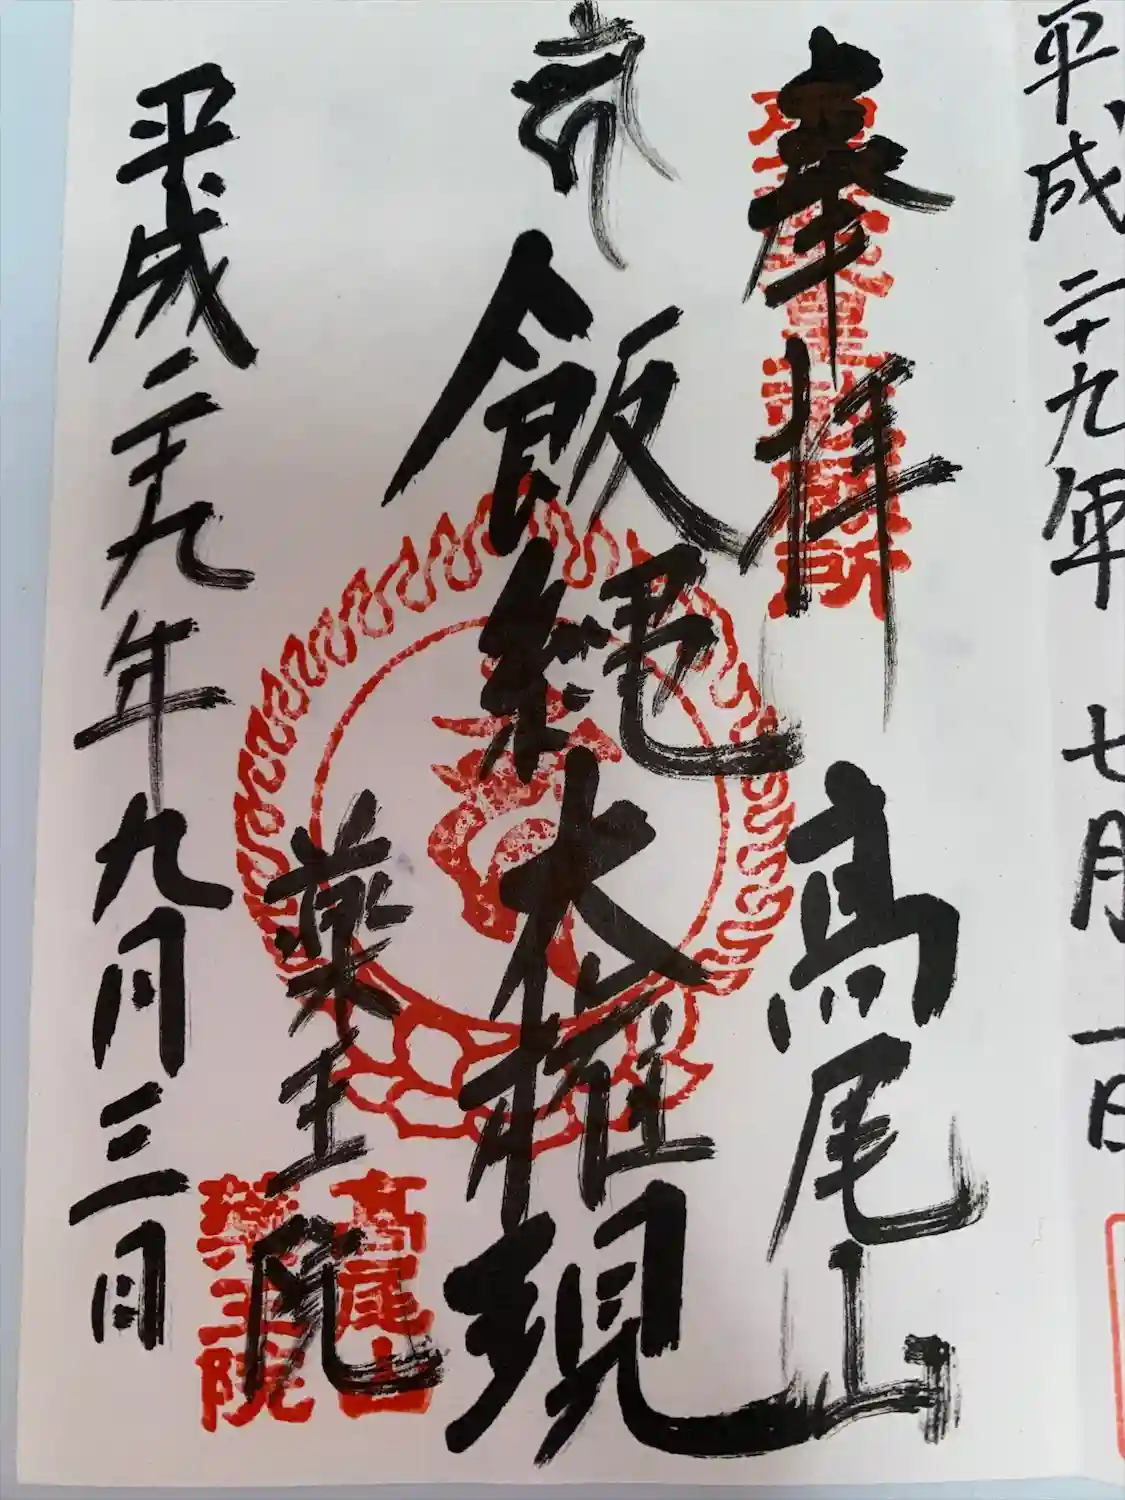 平成二十九年 七月 一日
奉拝 高尾山
飯縄大権現
薬王院
高尾山
薬王院
平成二十九年九月三日